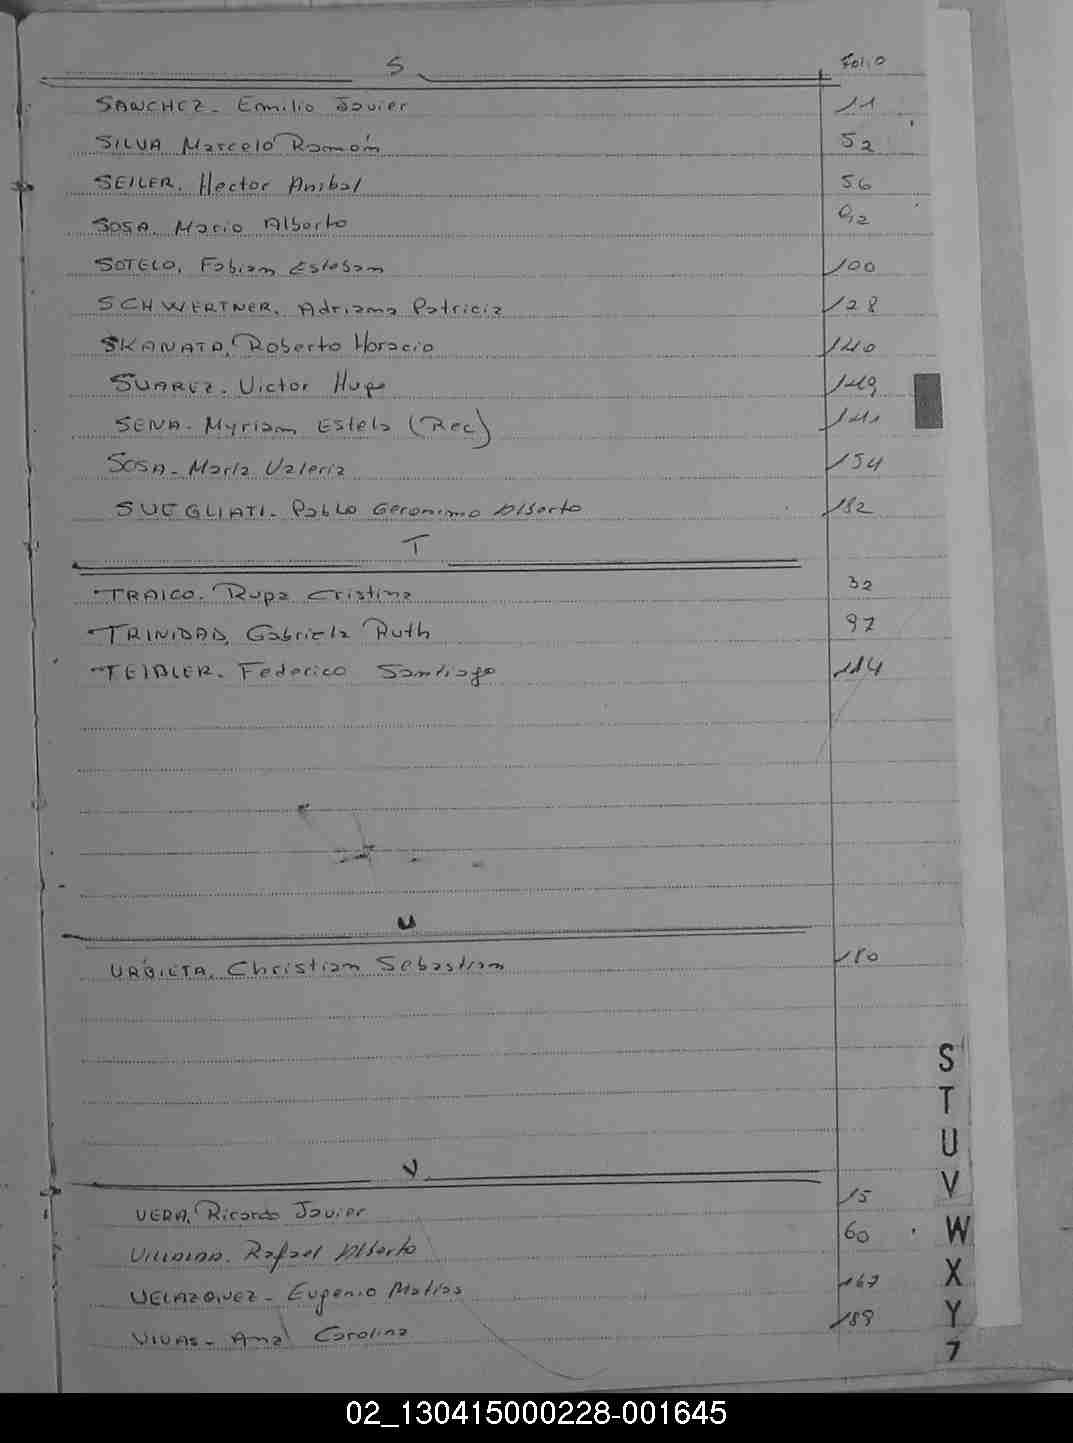 S Folio
SANCHEZ- Emilio Javier 11
SILVA Marcelo Ramón 52
SEILER. Hector Anibal 56
SOSA. Mario Alberto
SOTELO, Fabian Esteban 100
SCHWERTNER. Adriana Patricia 128
SKANATA, Roberto Horacio 140
SUAREZ. Victor Hugo 149
SENA- Myriam Estela (Rec) 141
SOSA- Maria Valeria 154
SVEGLIATI- Pablo Geronimo Alberto 182
T
TRAICO. Rupa Cristina 32
TRINIDAD, Gabriela Ruth 97
TEIBLER. Federico Santiago 114
U
URBIETA. Christian Sebastian 180
V
VERA, Ricardo Javier 15
Rafael Alberto 60
VELAZQUEZ- Eugenio Matias 167
VIVAS- Ana Carolina 189
S
T
U
V
W
X
Y
02_130415000228-001645